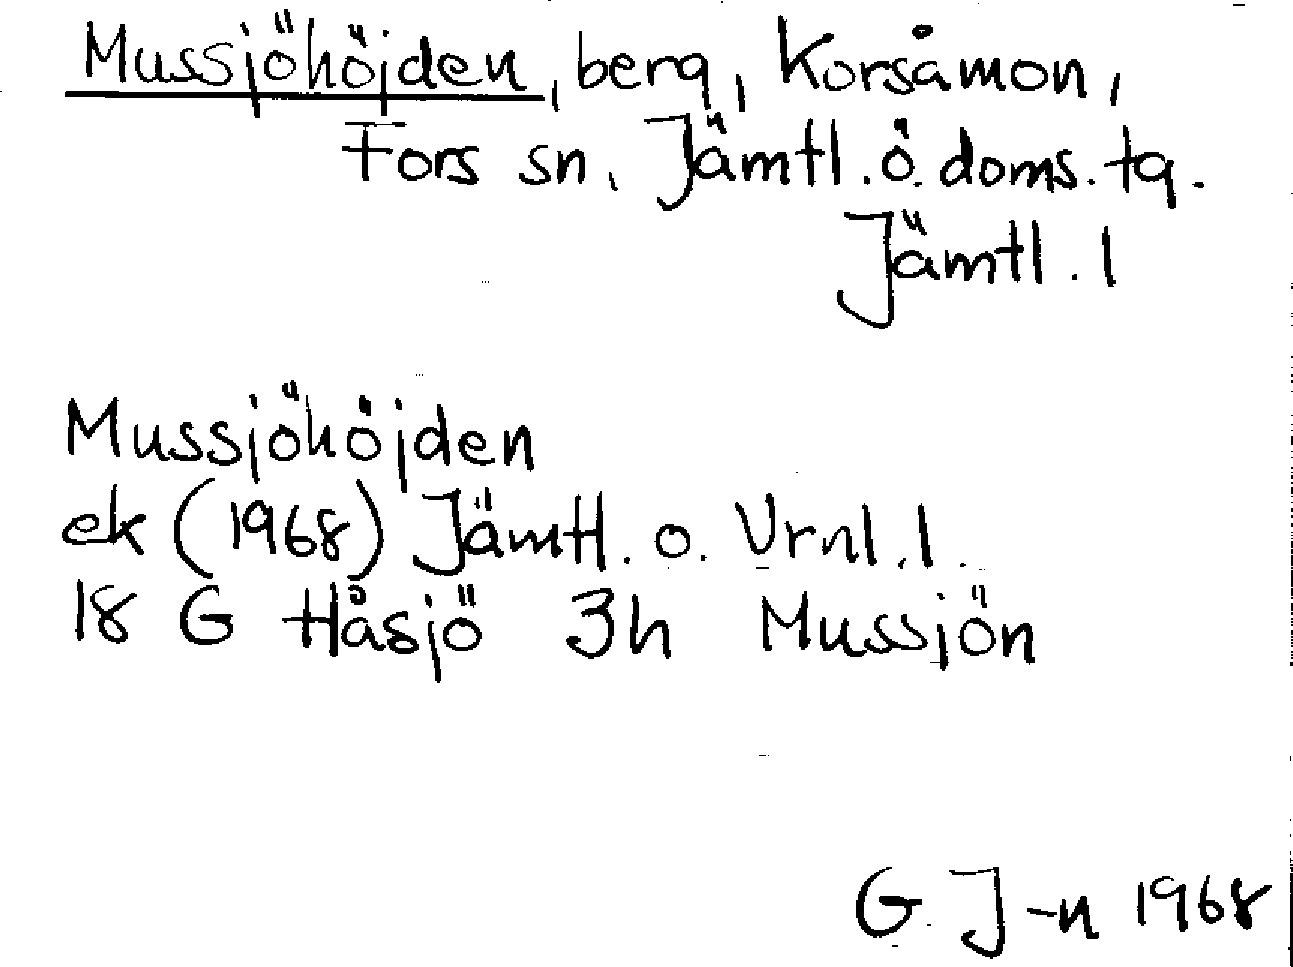 Mussjöhöjden, berg, Korsåmon,
Fors sn, Jämtl. ö. doms. tg.
Jämtl. l
Mussjöhöjden
ek (1968) Jämtl. o. Vrnl. l.
18 G Håsjö 3h Mussjön
G. J-n 1968